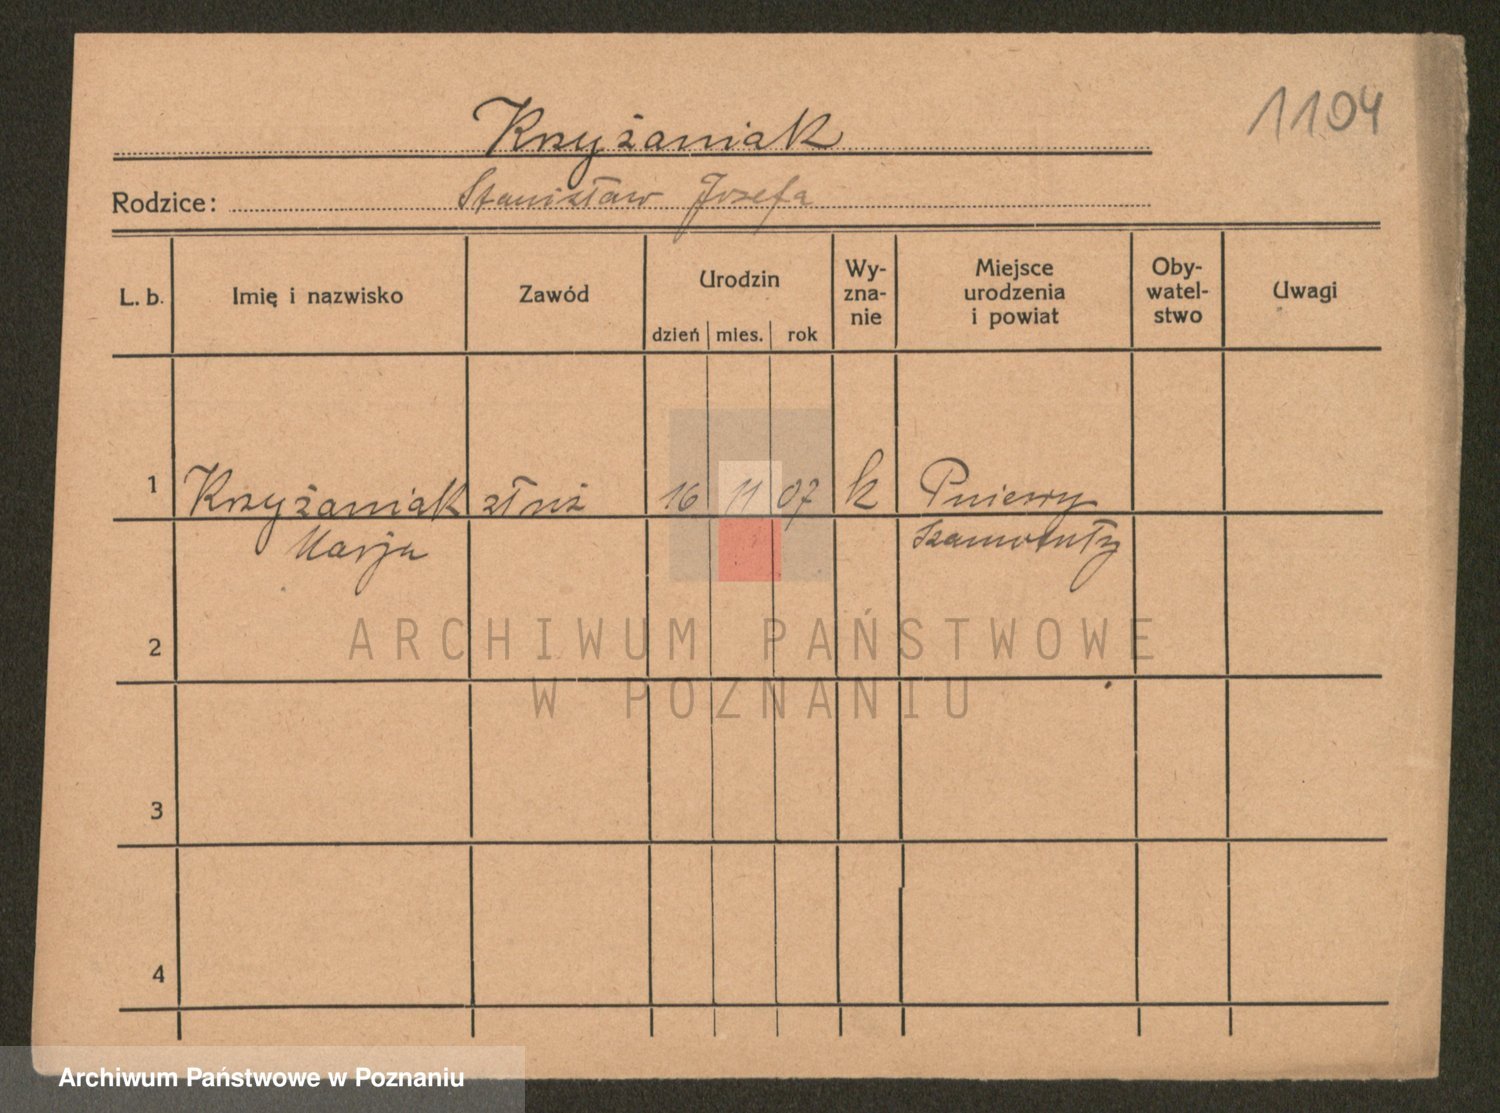 1104
Krzyżaniak
Rodzice: Stanisław Józefa
L. b. Imię i nazwisko Zawód Urodzin dzień mies. rok Wy-zna-nie Miejsce urodzenia i powiat Oby-watel-stwo Uwagi
1 Krzyżaniak 16 11 07 k Pniewy
Marja Szamotuły
2
3
4
ARCHIWUM PAŃSTWOWE
W POZNANIU
Archiwum Państwowe w Poznaniu